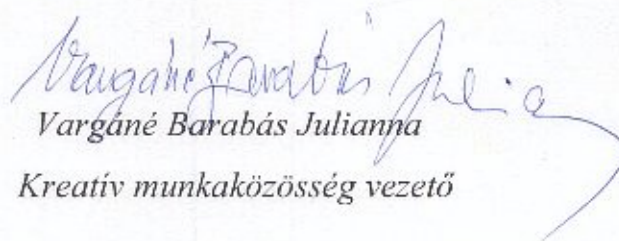 Vargáné Barabás Julianna
Vargáné Barabás Julianna
Kreatív munkaközösség vezető